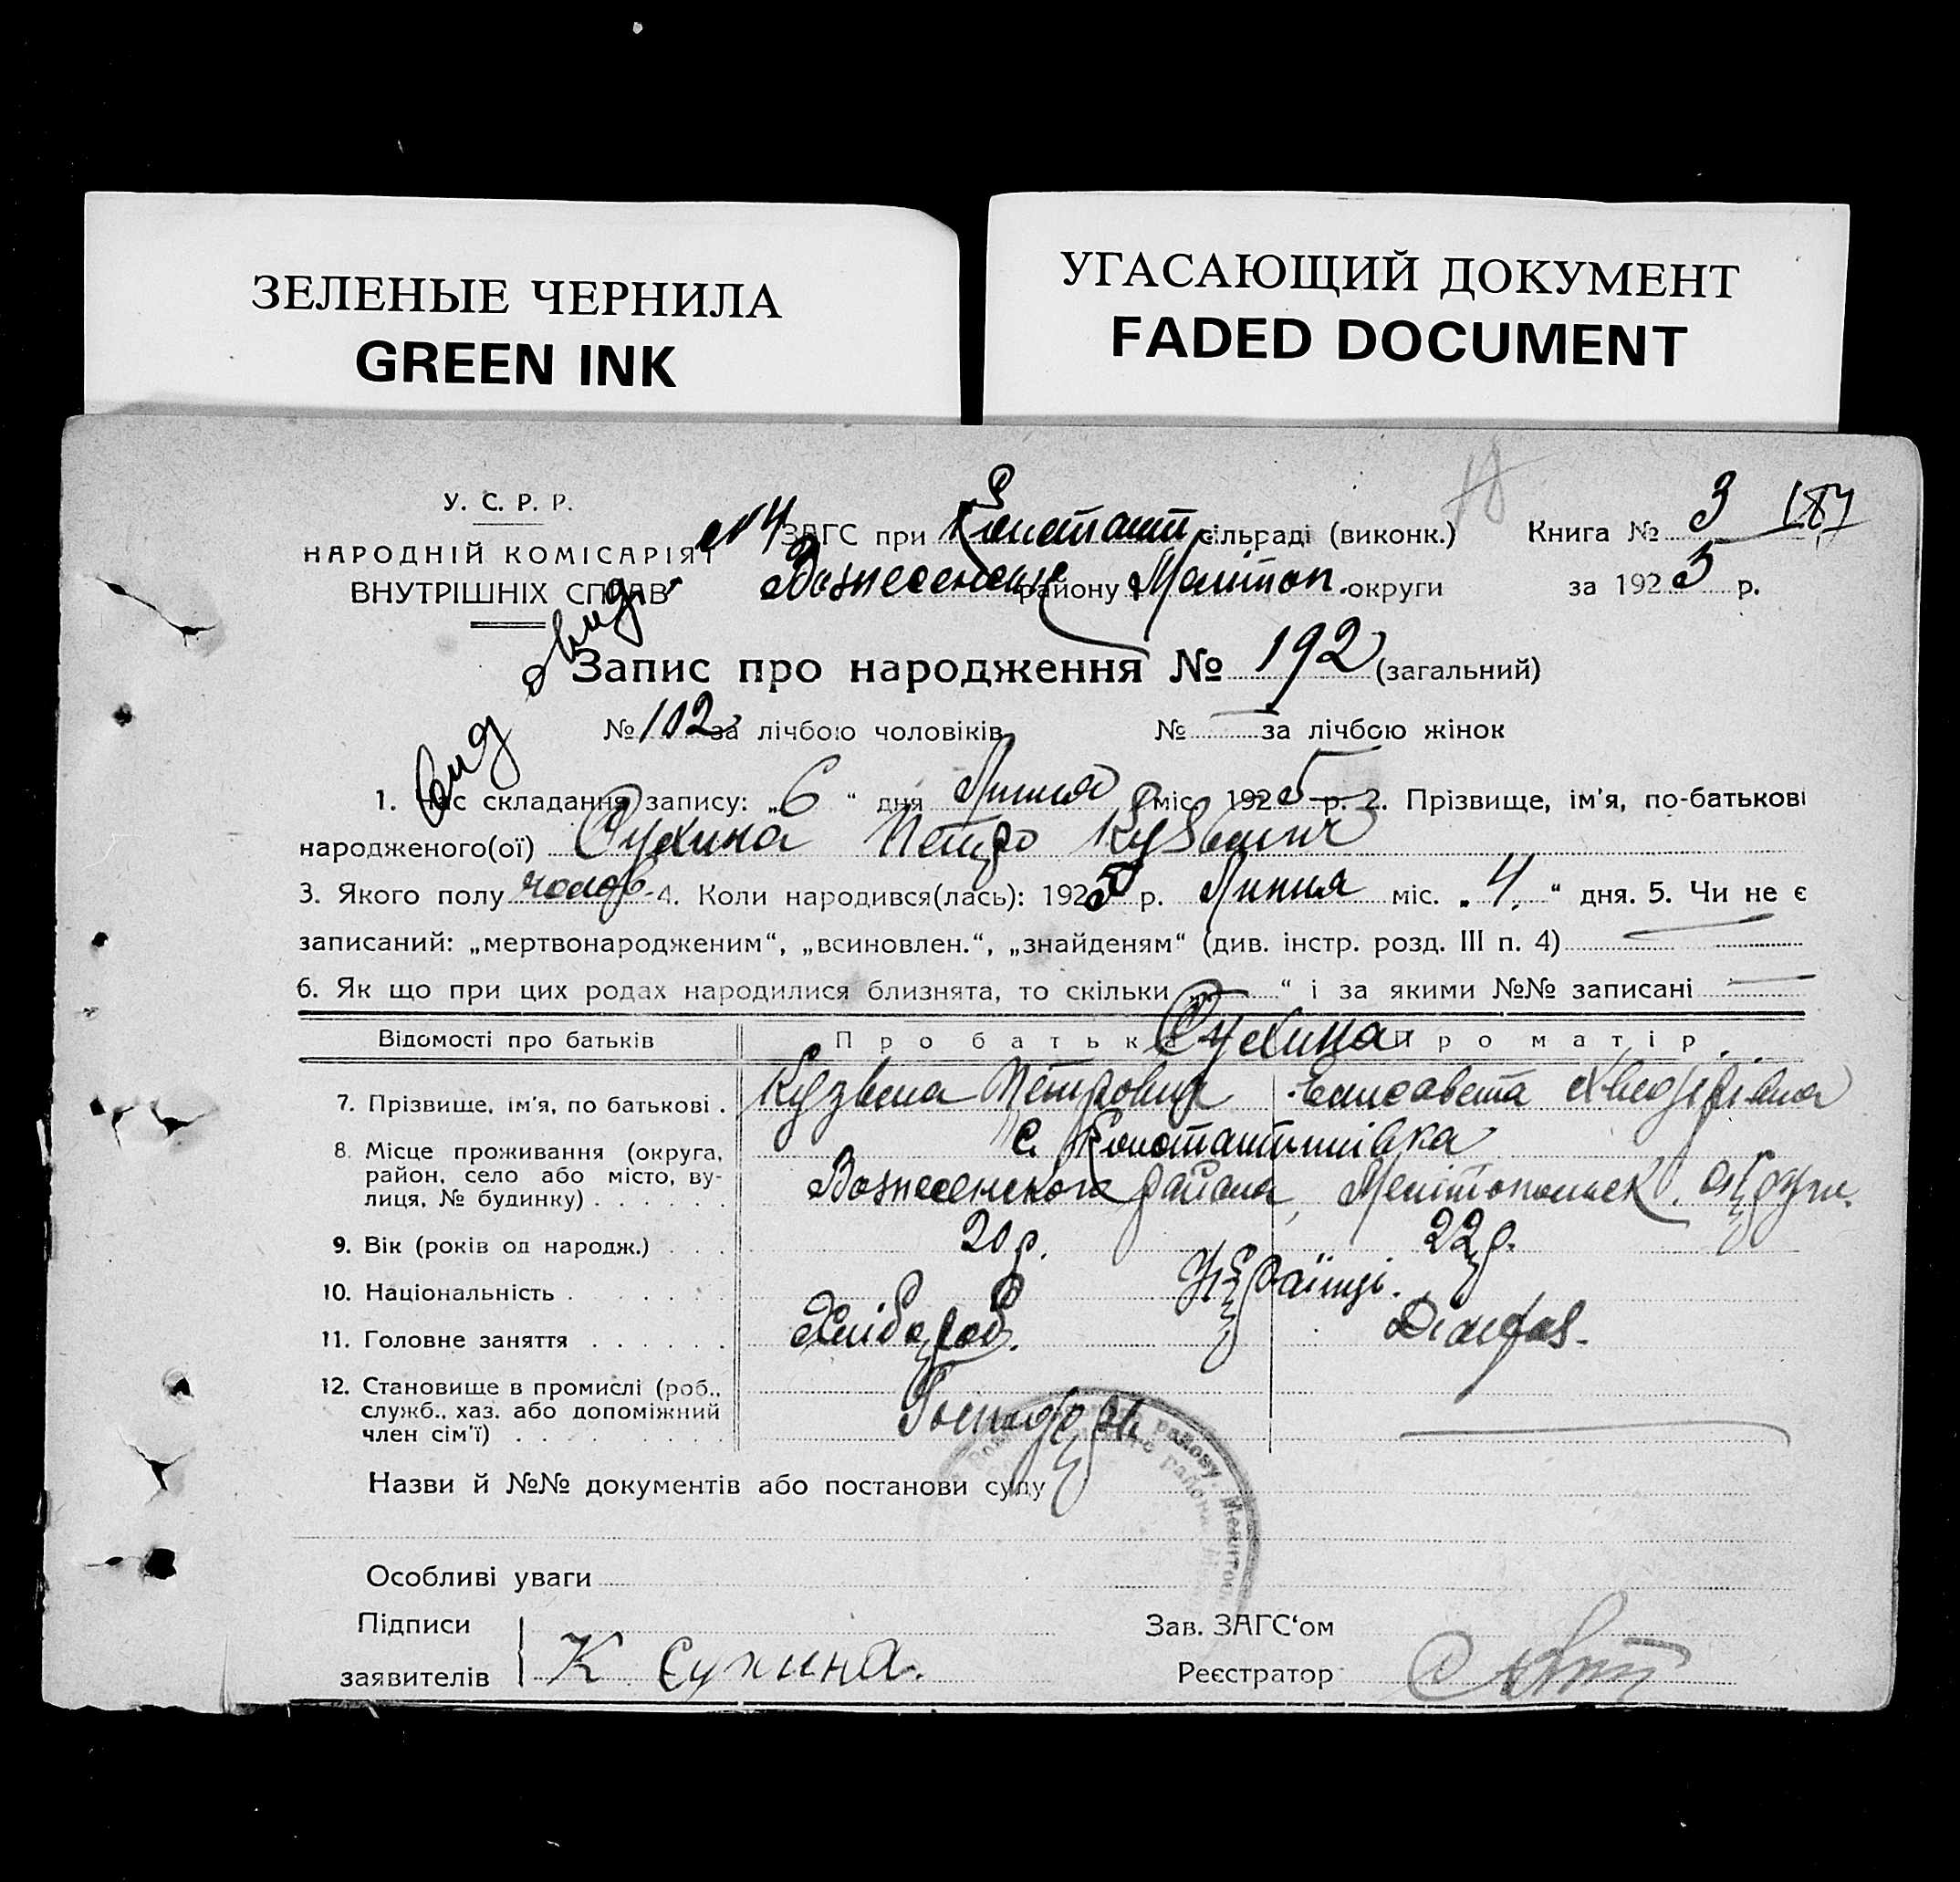 ЗЕЛЕНЫЕ ЧЕРНИЛА
GREEN INK
УГАСАЮЩИЙ ДОКУМЕНТ
FADED DOCUMENT
У. С. Р. Р.
НАРОДНІЙ КОМІСАРІЯТ
ВНУТРІШНІХ СПРАВ
ЗАГС при Констант сільраді (виконк.) Книга № 3 187
Вознесенськ району Мелітоп. округи за 1925 р.
Запис про народження № 192 (загальний)
№ 102 за лічбою чоловіків № — за лічбою жінок
1. Час складання запису: „6“ дня Липня міс. 1925 р. 2. Прізвище, ім'я, по-батькові
народженого(ої) Сухина Петро
3. Якого полу чолов. 4. Коли народився(лась): 1925 р. Липня міс. „4.“ дня. 5. Чи не є
записаний: „мертвонародженим“, „всиновлен.“, „знайденям“ (див. інстр. розд. III п. 4) —
6. Як що при цих родах народилися близнята, то скільки „—“ і за якими №№ записані —
Відомості про батьків Про батька Про матір.
Сухина
7. Прізвище, ім'я, по батькові . Петрович Єлисавета
8. Місце проживання (округа, район, село або місто, вулиця, № будинку) с. Константинівка
Вознесенського району, Мелітопольск. округи.
9. Вік (років од народж.) 20 р. 22 р.
10. Національність Українці.
11. Головне заняття Хлібороб.
12. Становище в промислі (роб., служб., хаз. або допоміжний член сім'ї) Господарь —
Назви й №№ документів або постанови суду
Особливі уваги
Підписи
заявителів К Сухина.
Зав. ЗАГС‘ом
Реєстратор